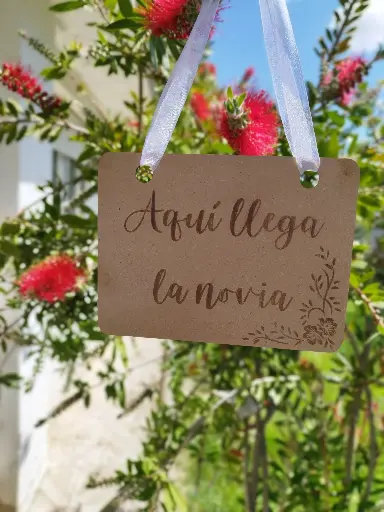 Aquí llega
la novia